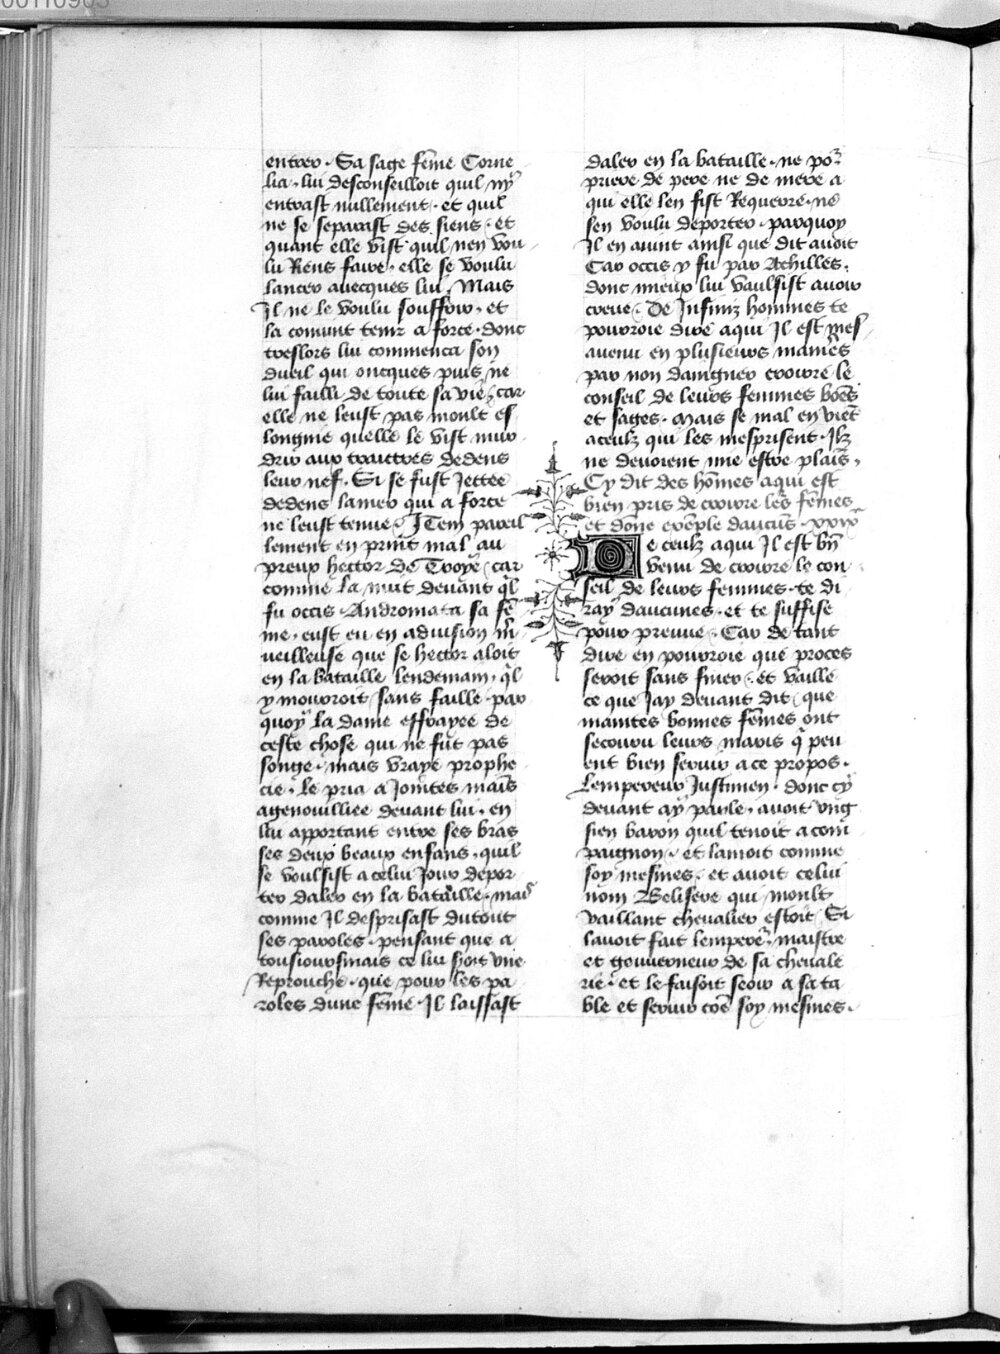 entrer. Sa sage fe͂me Corne
lia. lui desconseilloit quil ny
entrast nullement. et quil
ne se separast des siens. et
quant elle vist quil nen vou
lu Riens faire. elle se voulu
lancer auecques lui. Mais
Il ne le voulu souffrir. et
la conuint tenir a force. donc
treslors lui commenca son
dueil qui oncques puis ne
lui failli de toute sa vie. car
elle ne leust pas moult es
longnie quelle le vist mur
drir aux traictres dedens
leur nef. Si se fust Jettee
dedens la mer qui a force
ne leust tenue. Item pareil
lement en print mal au
preux hector de Troye. car
comme la nuit deuant q̃l
fu occis. Andromata sa fe͂
me. eust eu en aduision m̃
ueilleuse que se hector aloit
en la bataille lendemain. q̃l
y mourroit sans faille. par
quoy la dame effrayee de
ceste chose qui ne fut pas
songe. mais vraye prophe
cie. le pria a Jointes mains
agenouilliee deuant lui. en
lui apportant entre ses bras
ses deux beaux enfans. quil
se voulsist a celui Jour depor
ter daler en la bataille. mais
comme Il desprisast du tout
ses paroles. pensant que a
tousioursmais ce lui seroit vne
Reprouche. que pour les pa
roles dune fe͂me. Il laissast
daler en la bataille. ne por
priere de pere ne de mere a
qui elle len fist Requerre. ne
sen voulu deporter. parquoy
Il en auint ainsi que dit auoit
Car occis y fu par Achilles.
donc mieux lui vaulsist auoir
creue. De Infiniz hommes te
pourroie dire a qui Il est mes
auenu en plusieurs manie͂s
par non daingner croirre le
conseil de leurs femmes bo͂es
et sages. Mais se mal en vie͂t
a ceulx qui les mesprisent. Ilz
ne deuoient mie estre plains.
Cy dit des ho͂mes a qui est
bien pris de croirre les fe͂mes
et done exe͂ple daucu͂s. xxix
De ceulx a qui Il est bn͂
venu de croirre le con
seil de leurs femmes. te di
ray daucunes. et te suffise
pour preuue. Car de tant
dire en pourroie que proces
seroit sans finer. et vaille
ce que Jay deuant dit. que
maintes bonnes fe͂mes ont
secouru leurs maris q̃ peu
ent bien seruir a ce propos.
Lempereur Justinien. donc cy
deuant ay parle. auoit vng
sien baron quil tenoit a com
paignon. et lamoit comme
soy mesmes. et auoit celui
nom Belisere qui moult
vaillant cheualier estoit. Si
lauoit fait lempere͂r maistre
et gouuerneur de sa cheuale
rie. et le faisoit seoir a sa ta
ble et seruir co͂e soy mesmes.